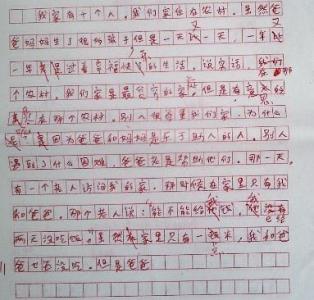 我家有十个人。我们家住在农村。虽然爸
爸妈妈生了很多孩子但是一天一天，一年
一年是过着幸福快的生活。说实话，我们
个农村，我们家是最穷的家，但是在
在那个农村，别人很我们家。为什么
是因为爸爸和妈妈是乐于助人的人，别人
遇到了什么困难，爸爸总是帮助他们，那一天，
有一个老人访问我的家，那时候在家里只有我
和爸爸，那个老人说：能不能给我饭，我没有
两天没吃饭。虽然家里只有一，我和爸
爸也不没吃，但是爸爸